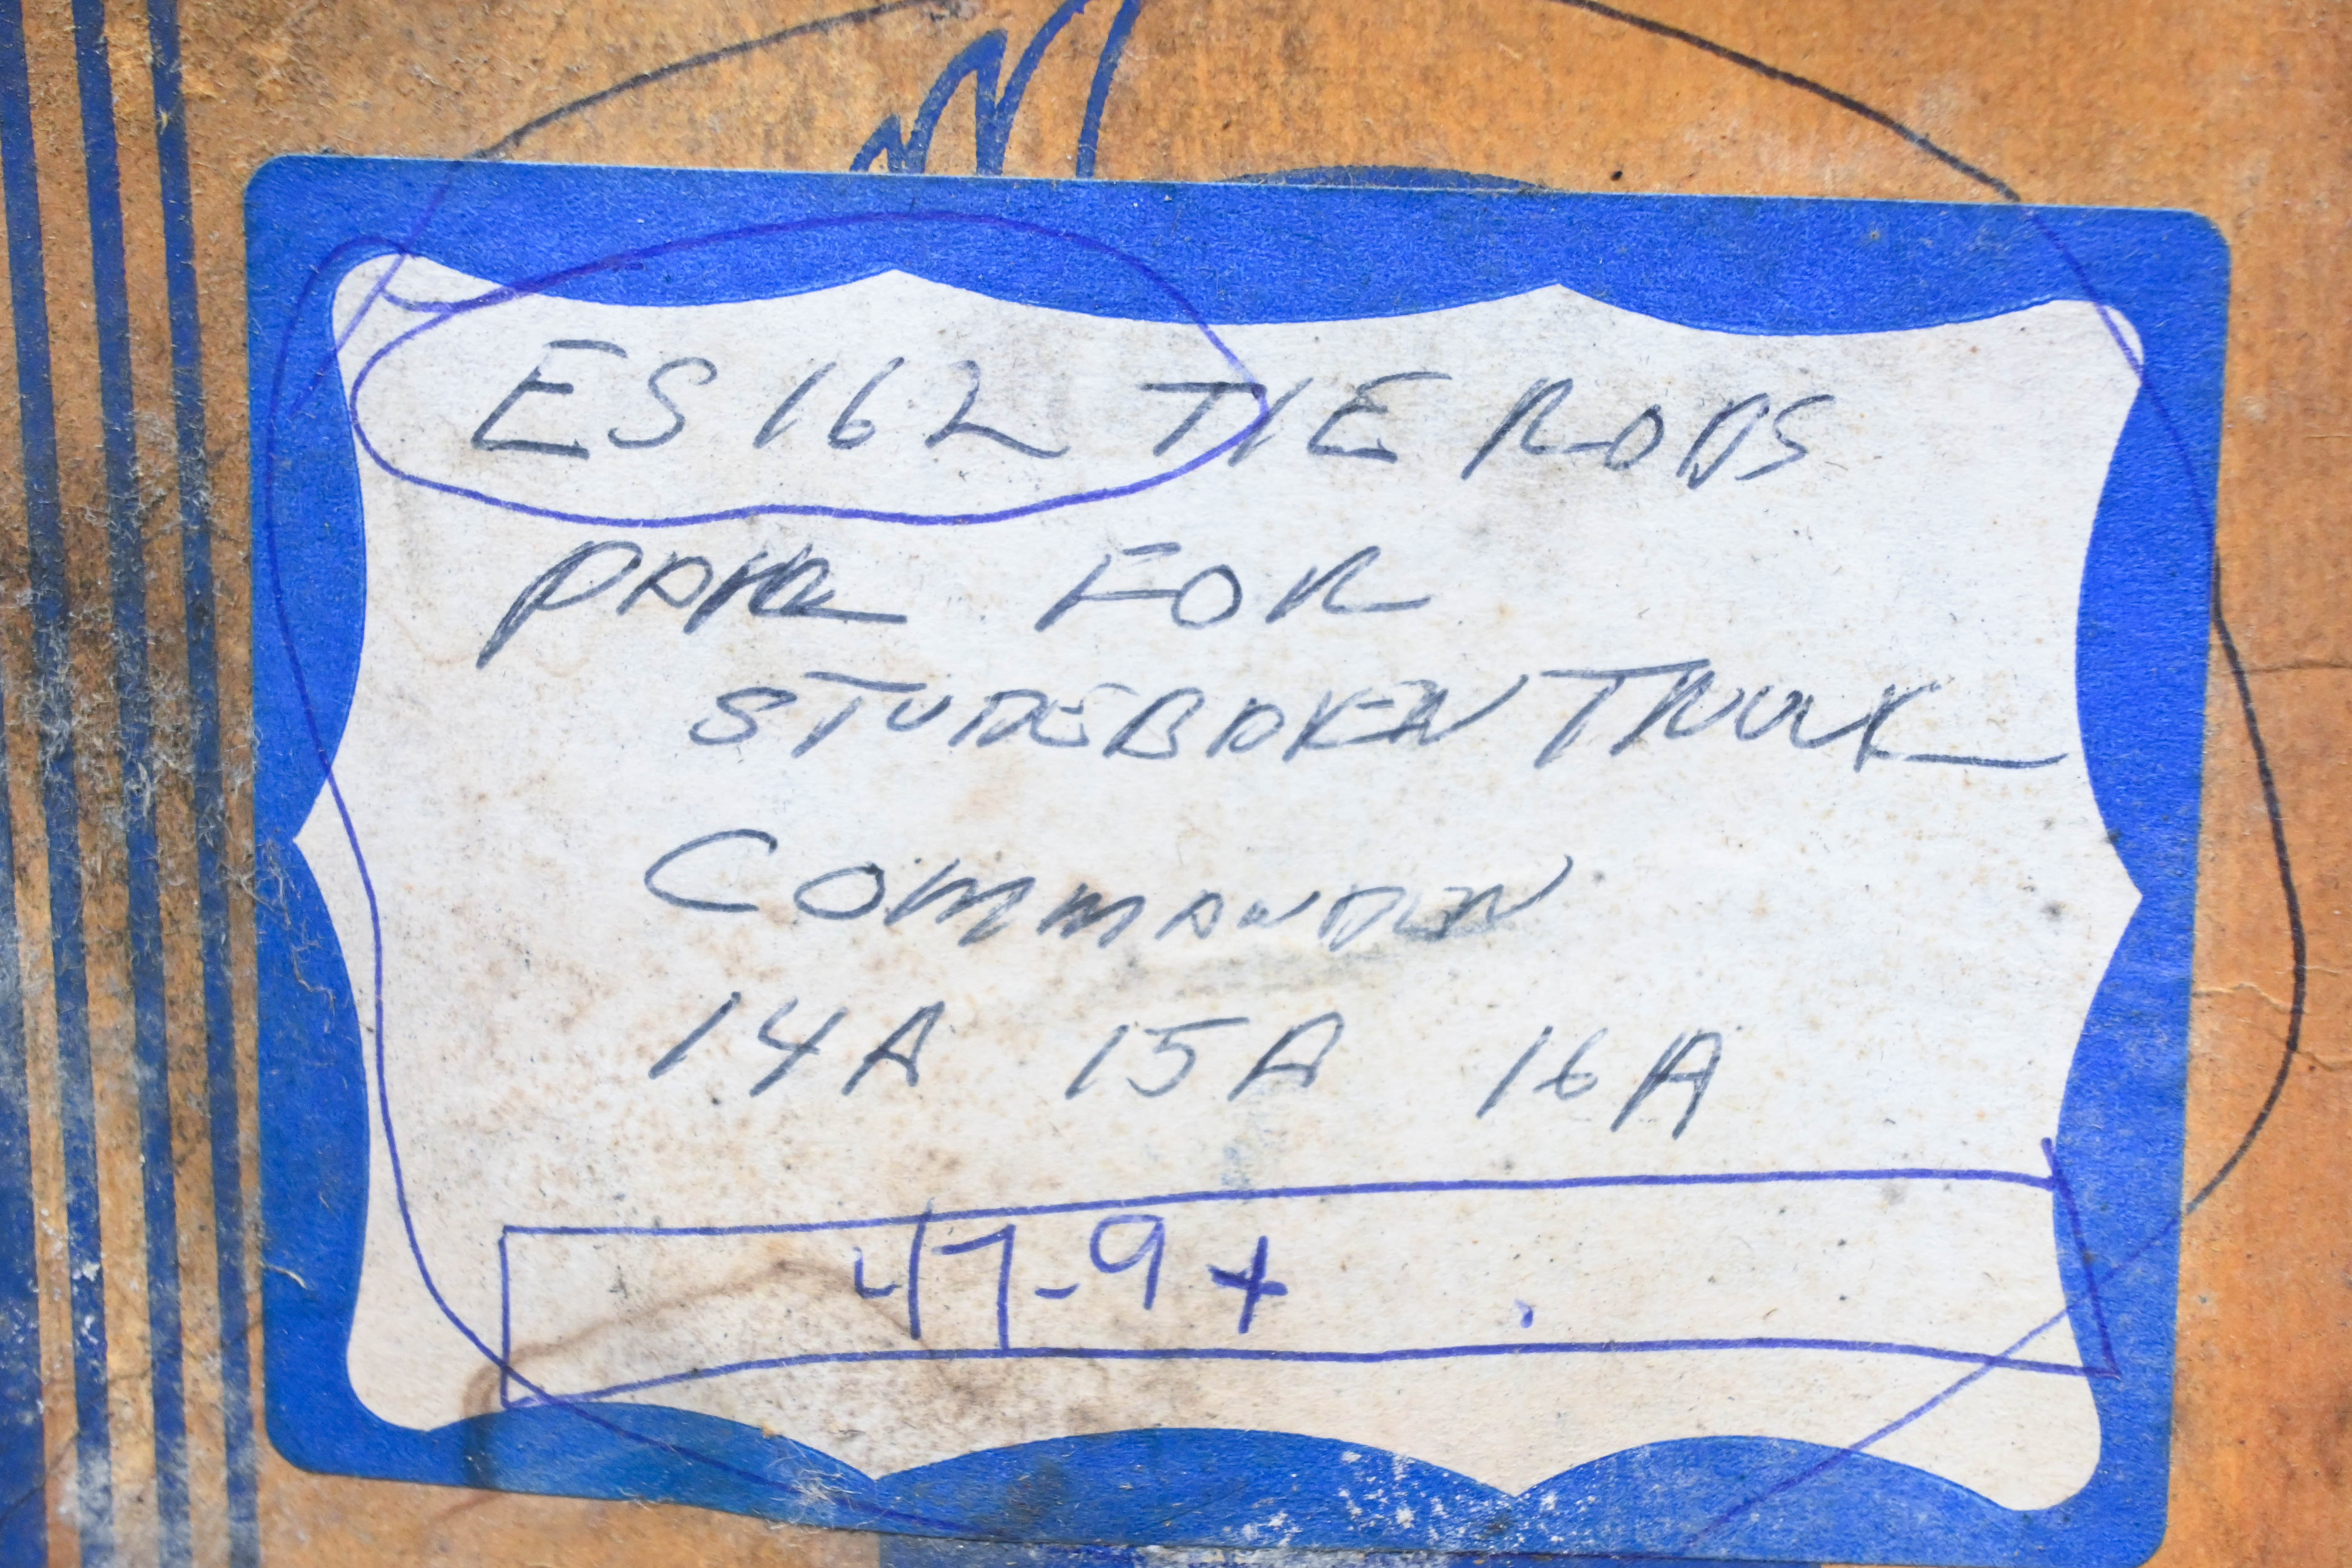 ES 162 TIE RODS
PAIR FOR
STUDEBAKER TRUCK
COMMANDER
14A 15A 16A
47-9+